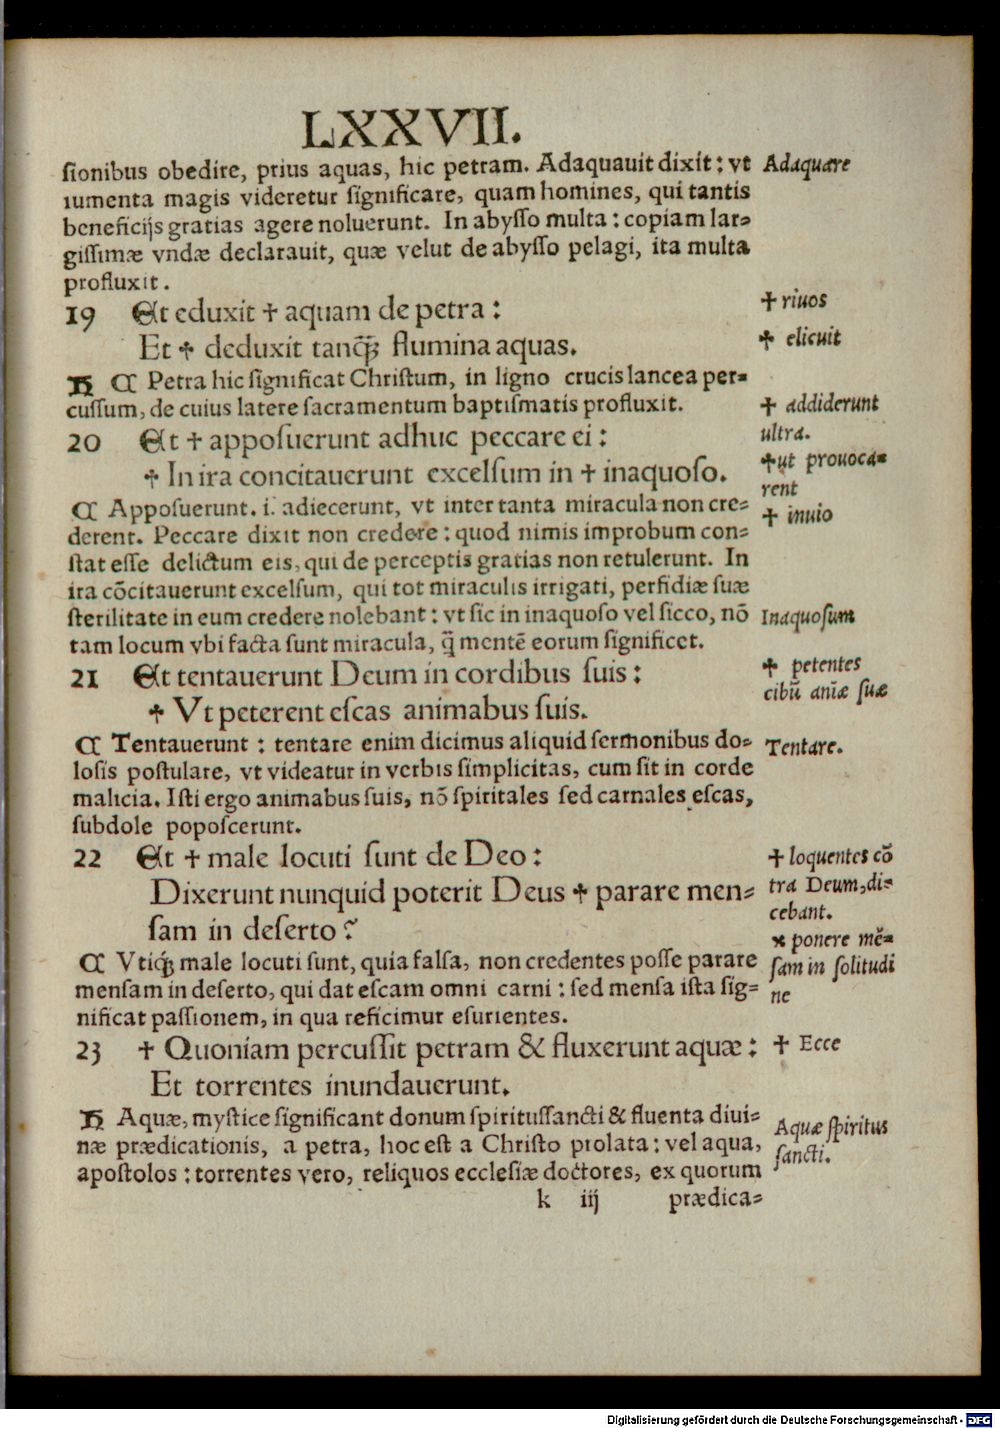 LXXVII.
sionibus obedire, prius aquas, hic petram. Adaquauit dixit: vt
iumenta magis videretur significare, quam homines, qui tantis
beneficijs gratias agere noluerunt. In abysso multa: copiam lar=
gissimæ vndæ declarauit, quæ velut de abysso pelagi, ita multa
profluxit.
Adaquare
19 Et eduxit ✝ aquam de petra:
Et ✝ deduxit tanq̃ flumina aquas.
✝ riuos
✝ elicuit
Petra hic significat Christum, in ligno crucis lancea per=
cussum, de cuius latere sacramentum baptismatis profluxit.
20 Et ✝ apposuerunt adhuc peccare ei:
✝ In ira concitauerunt excelsum in ✝ inaquoso.
✝ addiderunt
ultra.
✝ ut prouoca=
rent
✝ inuio
¶ Apposuerunt. i. adiecerunt, vt inter tanta miracula non cre=
derent. Peccare dixit non credere: quod nimis improbum con=
stat esse delictum eis, qui de perceptis gratias non retulerunt. In
ira cõcitauerunt excelsum, qui tot miraculis irrigati, perfidiæ suæ
sterilitate in eum credere nolebant: vt sic in inaquoso vel sicco, nõ
tam locum vbi facta sunt miracula, q̃ mentẽ eorum significet.
Inaquosum
21 Et tentauerunt Deum in cordibus suis:
✝ Vt peterent escas animabus suis.
✝ petentes
cibũ aniæ suæ
¶ Tentauerunt: tentare enim dicimus aliquid sermonibus do=
losis postulare, vt videatur in verbis simplicitas, cum sit in corde
malicia. Isti ergo animabus suis, nõ spiritales sed carnales escas,
subdole poposcerunt.
Tentare.
22 Et ✝ male locuti sunt de Deo:
Dixerunt nunquid poterit Deus ✝ parare men=
sam in deserto?
✝ loquentes cõ
tra Deum, di=
cebant.
× ponere mẽ=
sam in solitudi
ne
¶ Vtiq; male locuti sunt, quia falsa, non credentes posse parare
mensam in deserto, qui dat escam omni carni: sed mensa ista sig=
nificat passionem, in qua reficimur esurientes.
23 ✝ Quoniam percussit petram & fluxerunt aquæ:
Et torrentes inundauerunt.
✝ Ecce
Aquæ, mystice significant donum spiritussancti & fluenta diui=
næ prædicationis, a petra, hoc est a Christo prolata: vel aqua,
apostolos: torrentes vero, reliquos ecclesiæ doctores, ex quorum
Aquæ spiritus
sancti.
k iij prædica=
Digitalisierung gefördert durch die Deutsche Forschungsgemeinschaft - DFG